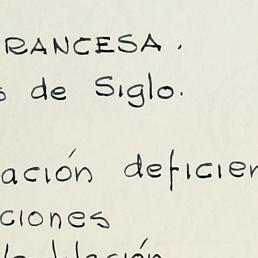 RANCESA.
s de Siglo.
ación deficien
ciones